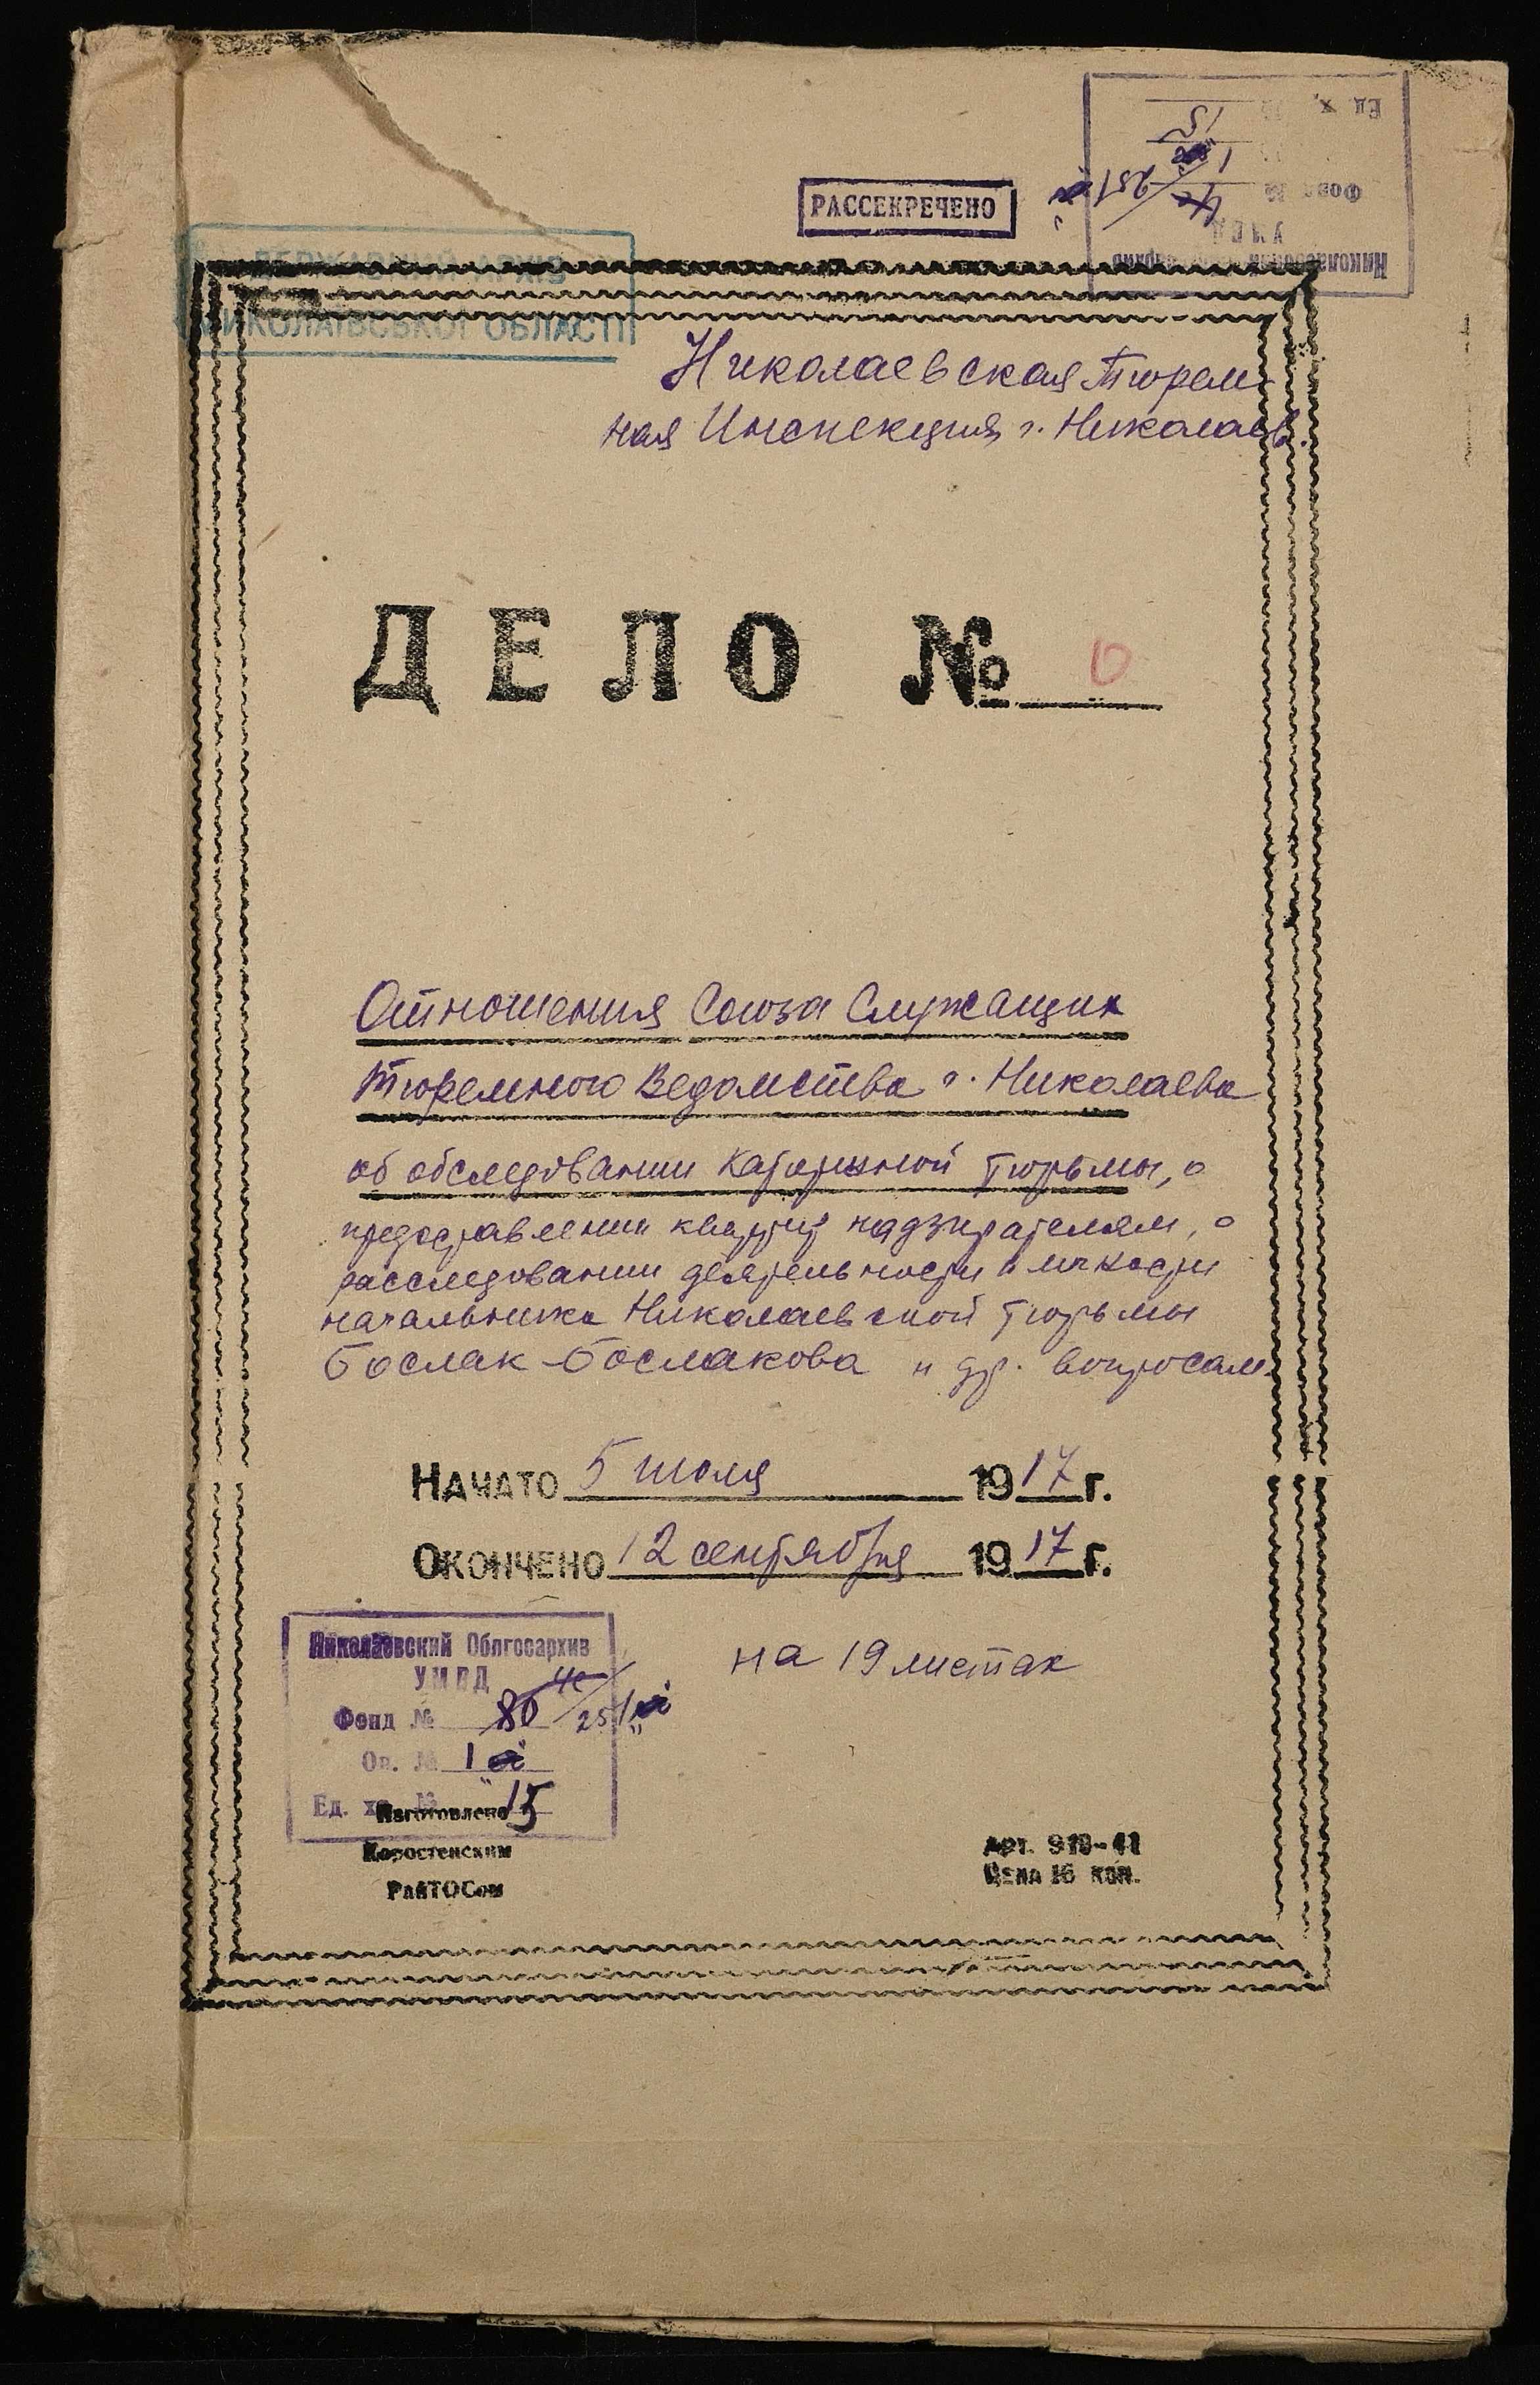 РАССЕКРЕЧЕНО
Николаевский
УМВД
Фонд №
251
1
15
Ед. х.
ДЕРЖАВНИЙ АРХІВ
МИКОЛАЇВСЬКОЇ ОБЛАСТІ
Николаевская Тюрем-
ная Инспекция г. Николаев.
ДЕЛО № 0
Отношения Союза Служащих
Тюремного Ведомства г. Николаева
об обследовании каторжной тюрьмы, о
предоставлении квартир надзирателям, о
расследовании деятельности и личности
начальника Николаевской тюрьмы
Бослак-Бослакова и др. вопросам.
НАЧАТО 5 июля 1917 г.
ОКОНЧЕНО 12 сентября 1917 г.
на 19 листах
Николаевский Облгосархив
УМВД
Фонд № 80 251
Оп. № 1
Ед. хр. № 15
Изготовлено
Коростенским
РайТОСом
Арт. 918-41
Цена 16 коп.